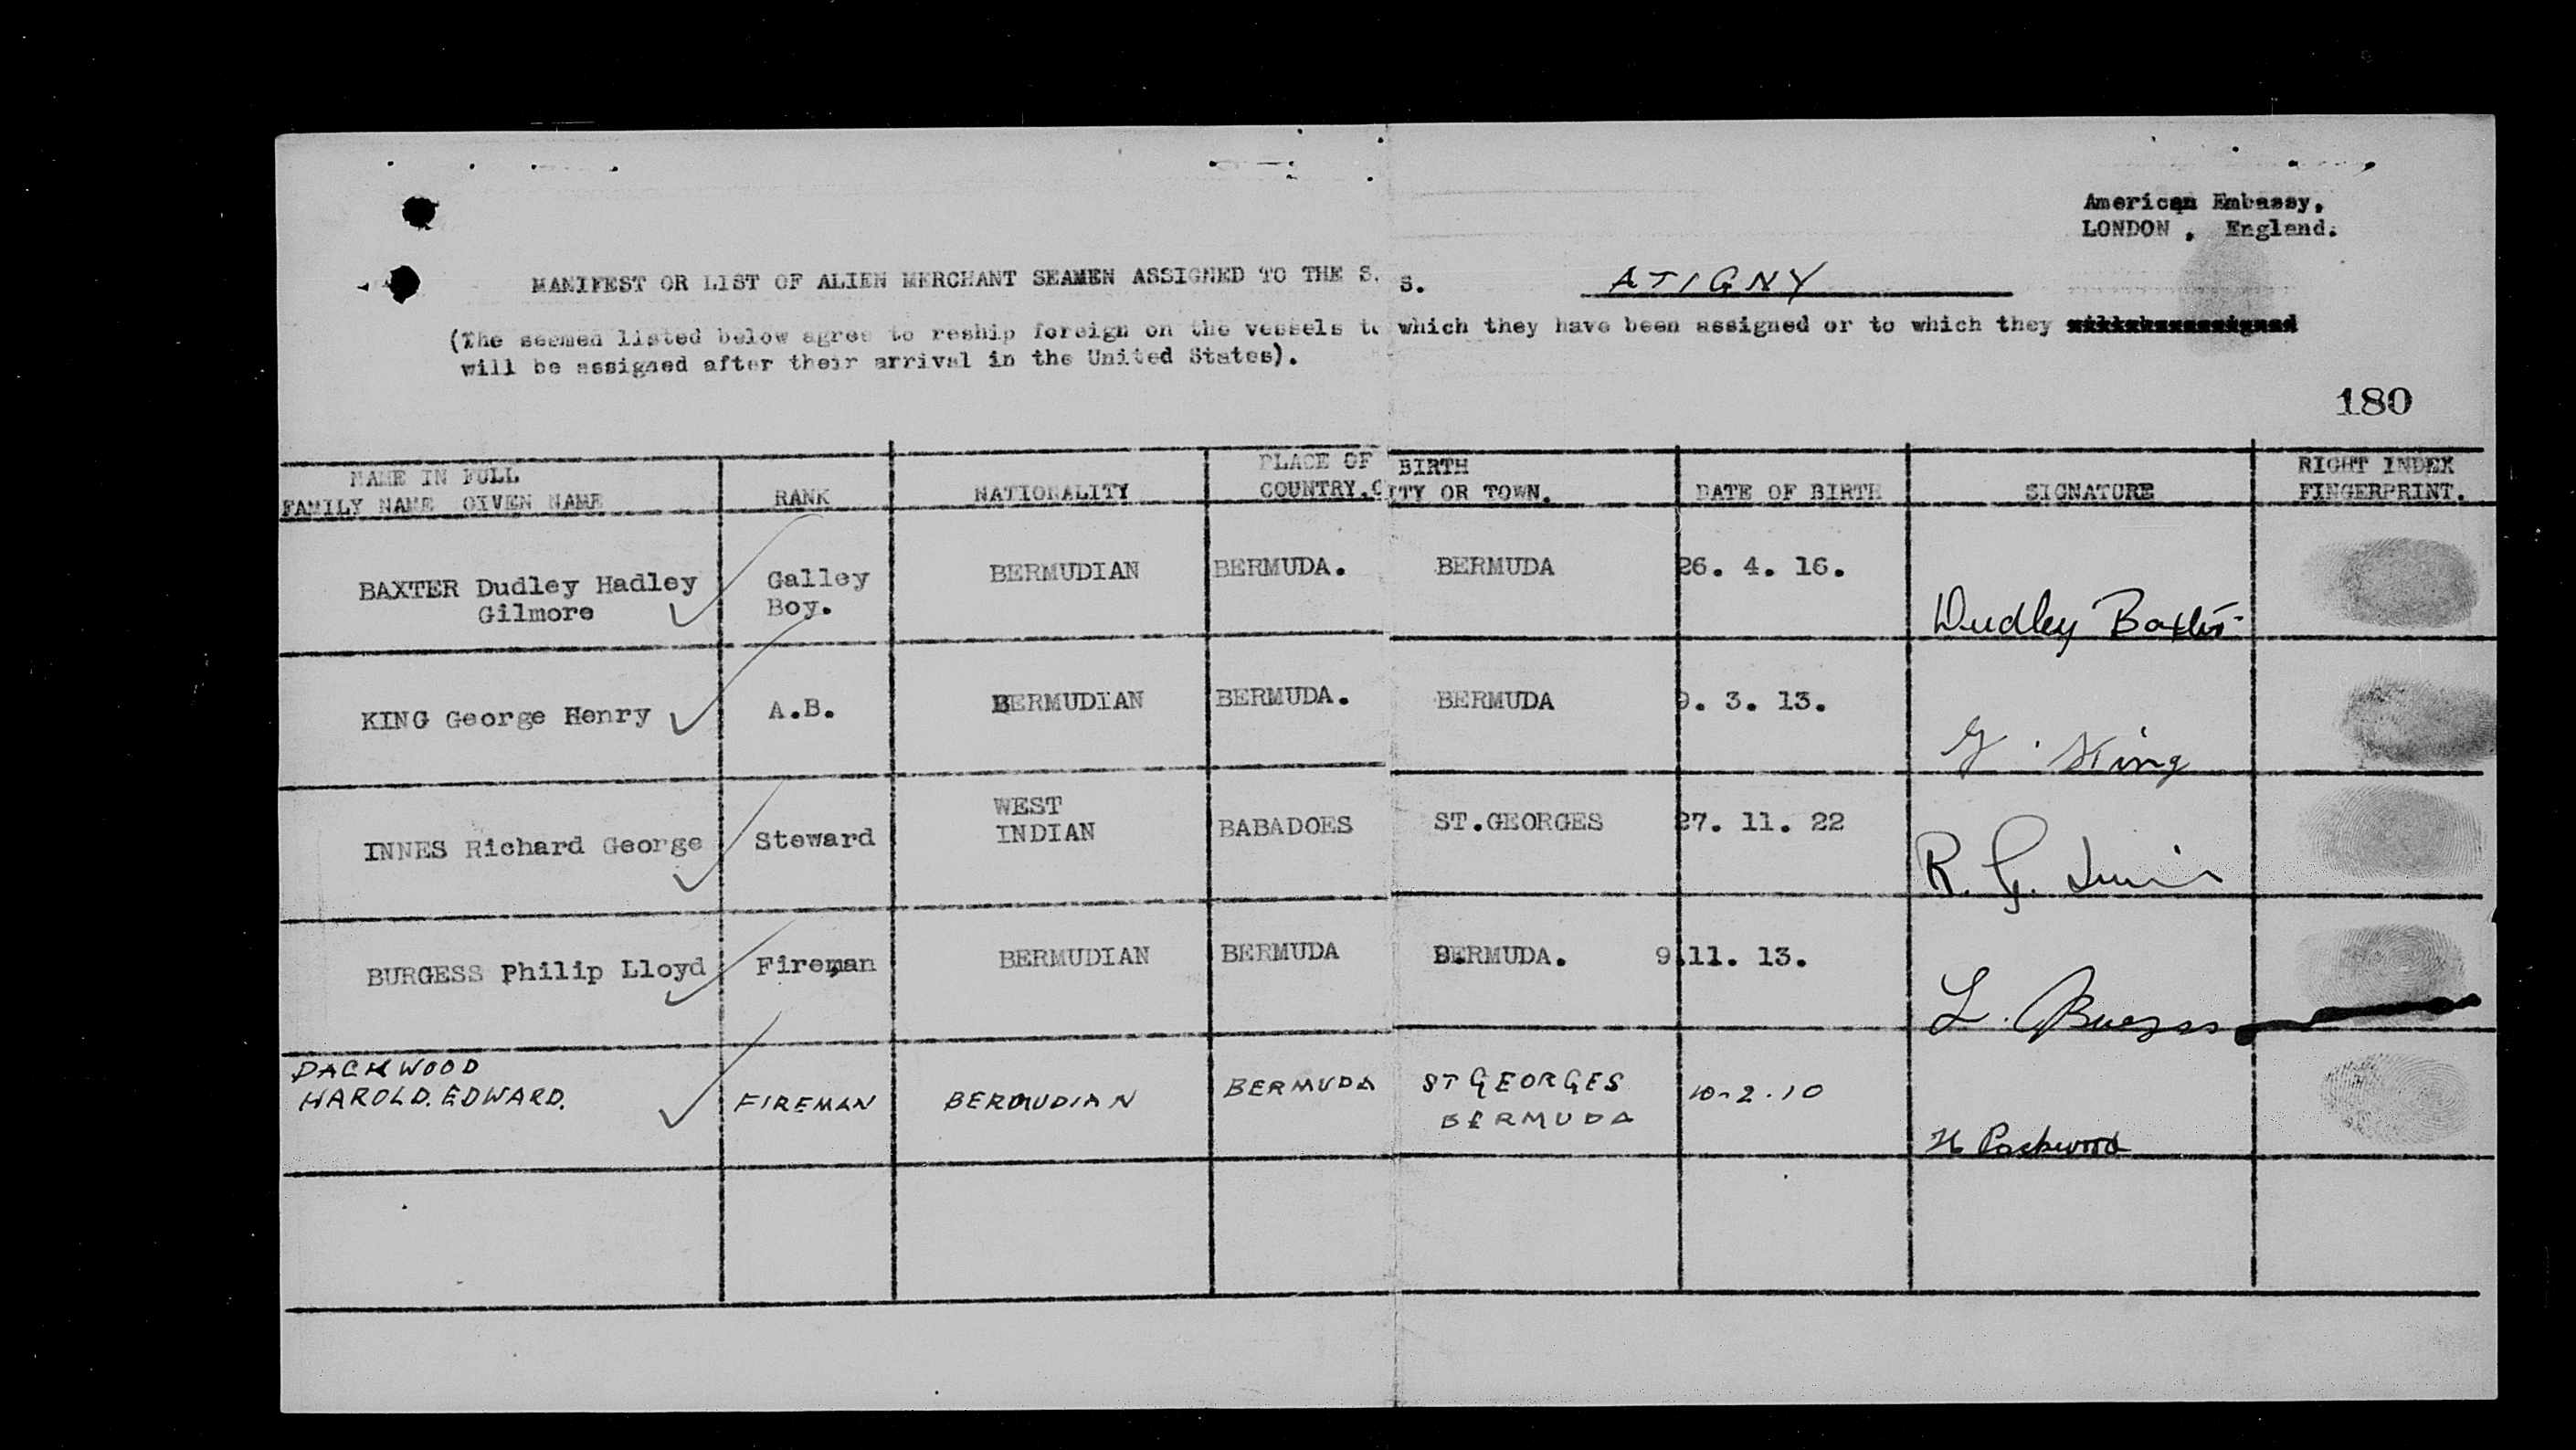 American Embassy,
LONDON , England.
MANIFEST OR LIST OF ALIEN MERCHANT SEAMEN ASSIGNED TO THE S. S. ATIGNY
(The seemen listed below agree to reship foreign on the vessels to which they have been assigned or to which they
will be assigned after their arrival in the United States).
180
NAME IN FULL PLACE OF BIRTH RIGHT INDEX
FAMILY NAME GIVEN NAME RANK NATIONALITY COUNTRY.CITY OR TOWN. DATE OF BIRTH SIGNATURE FINGERPRINT.
BAXTER Dudley Hadley Galley BERMUDIAN BERMUDA. BERMUDA 26. 4. 16.
Gilmore Boy. Dudley Baxter
KING George Henry A.B. BERMUDIAN BERMUDA. BERMUDA 9. 3. 13.
G. King
WEST
INNES Richard George Steward INDIAN BABADOES ST.GEORGES 27. 11. 22
R. G. Innis
BURGESS Philip Lloyd Fireman BERMUDIAN BERMUDA BERMUDA. 9.11. 13.
L. Burgess
PACKWOOD
HAROLD. EDWARD. FIREMAN BERMUDIAN BERMUDA ST GEORGES 10-2.10
BERMUDA
H Packwood